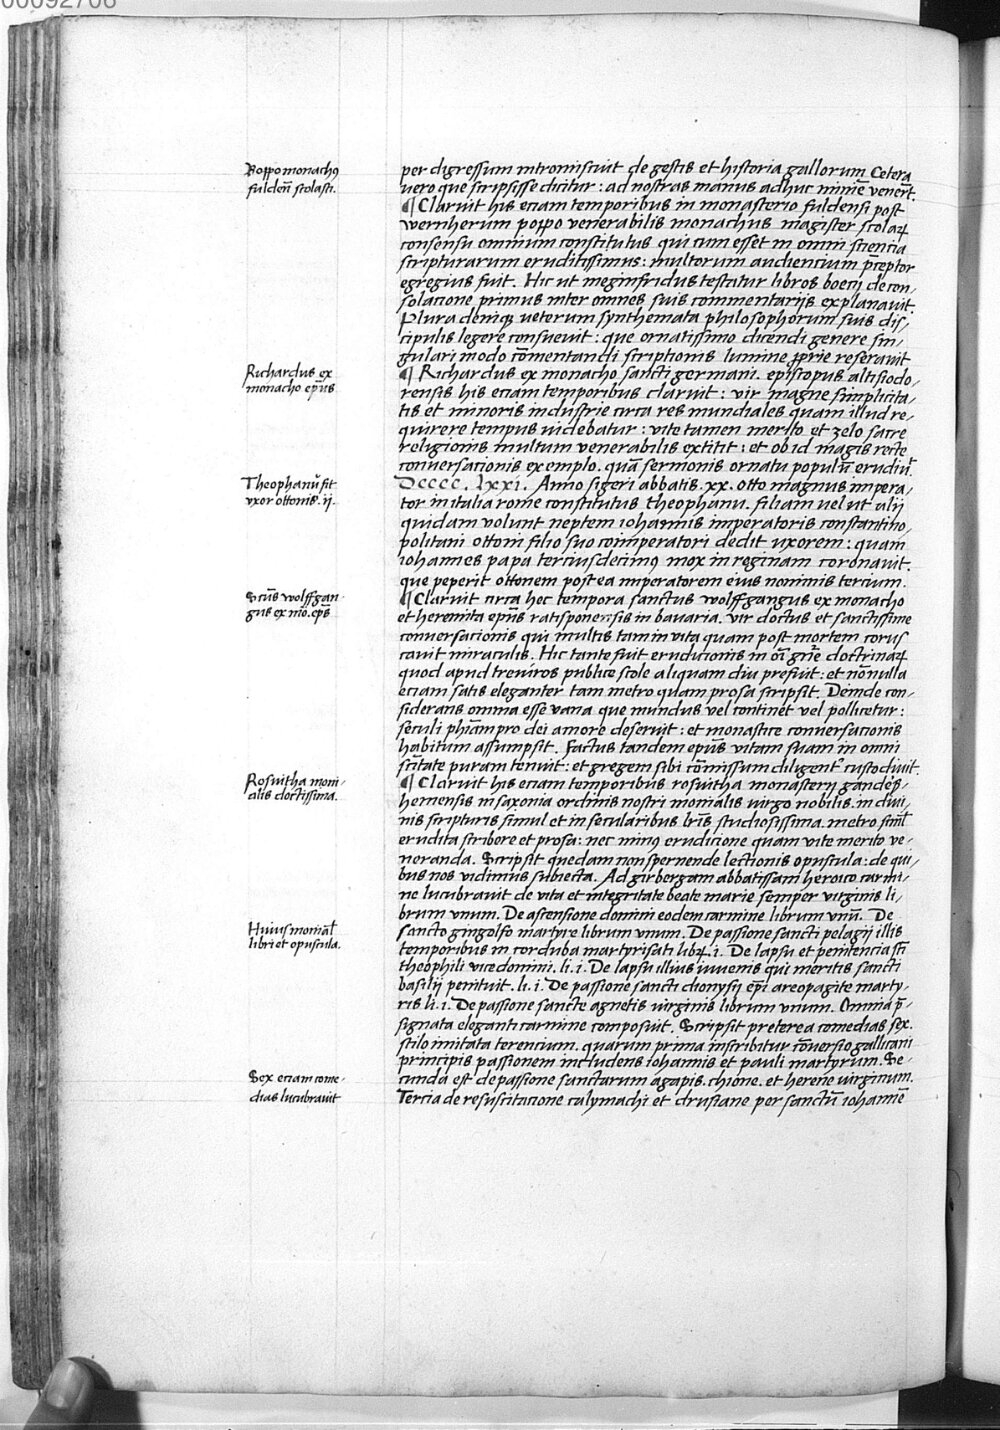 00092706
Poppo monachꝰ
fulden̄ scolasti.
per digressum intromiscuit de gestis et historia gallorum Cetera
uero que scripsisse dicitur : ad nostras manus adhuc minīe venerūt.
¶ Claruit his eciam temporibus in monasterio fuldensi post
wernherum poppo venerabilis monachus magister scolaꝝ
consensu omnium constitutus qui cum esset in omni sciencia
scripturarum eruditissimus : multorum audiencium p̄ceptor
egregius fuit. Hic ut meginfridus testatur libros boecij de con,
solacione primus inter omnes suis commentarijs explanauit.
Plura deniqꝫ ueterum synthemata philosophorum suis dis,
cipulis legere consueuit : que ornatissimo dicendi genere sin,
gulari modo cōmentandi scriptionis lumine ꝓprie reserauit
Richardus ex
monacho ep̄us
¶ Richardus ex monacho sancti germani. episcopus altisiodo,
rensis his eciam temporibus claruit : vir magne simplicita,
tis et minoris industrie circa res mundiales quam illud re,
quirere tempus uidebatur : vite tamen merito et zelo sacre
religionis multum venerabilis extitit : et ob id magis recte
conuersacionis exemplo. quā sermonis ornatu populū erudiuit
Theophanū fit
vxor ottonis. ij.
Dcccc. lxxi. Anno sigeri abbatis. xx. otto magnus impera,
tor in italia rome constitutus theophanu. filiam uel ut alij
quidam volunt neptem iohannis imperatoris constantino,
politani ottoni filio suo coimperatori dedit uxorem : quam
iohannes papa terciusdecimꝰ mox in reginam coronauit.
que peperit ottonem postea imperatorem eius nominis tercium.
Scūs wolffgan
gus ex mōo. ep̄s
¶ Claruit circa hec tempora sanctus wolffgangus ex monacho
et heremita ep̄us ratisponensis in bauaria. vir doctus et sanctissime
conuersacionis qui multis tam in vita quam post mortem corus
cauit miraculis. Hic tante fuit erudicionis in oī gn̄e doctrinaꝝ
quod apud treuiros publice scole aliquam diu prefuit : et nōnulla
eciam satis eleganter tam metro quam prosa scripsit. Deinde con,
siderans omnia esse vana que mundus vel continet vel pollicetur :
seculi phīam pro dei amore deseruit : et monastice conuersacionis
habitum assumpsit. Factus tandem ep̄us vitam suam in omni
sc̄itate puram tenuit : et gregem sibi cōmissum diligent͛ custodiuit.
Rosuitha moni,
alis doctissima.
¶ Claruit his eciam temporibus rosuitha monasterij gandes̄,
hemensis in saxonia ordinis nostri monialis uirgo nobilis. in diui,
nis scripturis simul et in secularibus lrīs studiosissima. metro simł
erudita scribere et prosa : nec minꝰ erudicione quam vite merito ve,
neranda. Scripsit quedam non spernende lectionis opuscula : de qui,
bus nos vidimus subiecta. Ad girbergam abbatissam heroico carmi,
ne lucubrauit de vita et integritate beate marie semper virginis li,
brum vnum. De ascensione domini eodem carmine librum vnū. De
Huius moniał
libri et opuscula.
sancto gingolfo martyre librum unum. De passione sancti pelagij illis
temporibus in corduba martyrisati libꝝ. i. De lapsu et penitencia sc̄i
theophili vicedomini. li. i. De lapsu illius iuuenis qui meritis sancti
basilij penituit. li. i. De passione sancti dionysij ep̄i areopagite marty,
ris li. i. De passione sancte agnetis uirginis librum vnum. Omnia p̄,
signata eleganti carmine composuit. Scripsit preterea comedias sex.
stilo imitata terencium. quarum prima inscribitur cōuersio gallicani
principis passionem includens iohannis et pauli martyrum. Se,
Sex eciam come,
dias lucubrauit
cunda est de passione sanctarum agapis. chione. et herene uirginum.
Tercia de resuscitacione calymachi et drusiane per sanctū iohannē